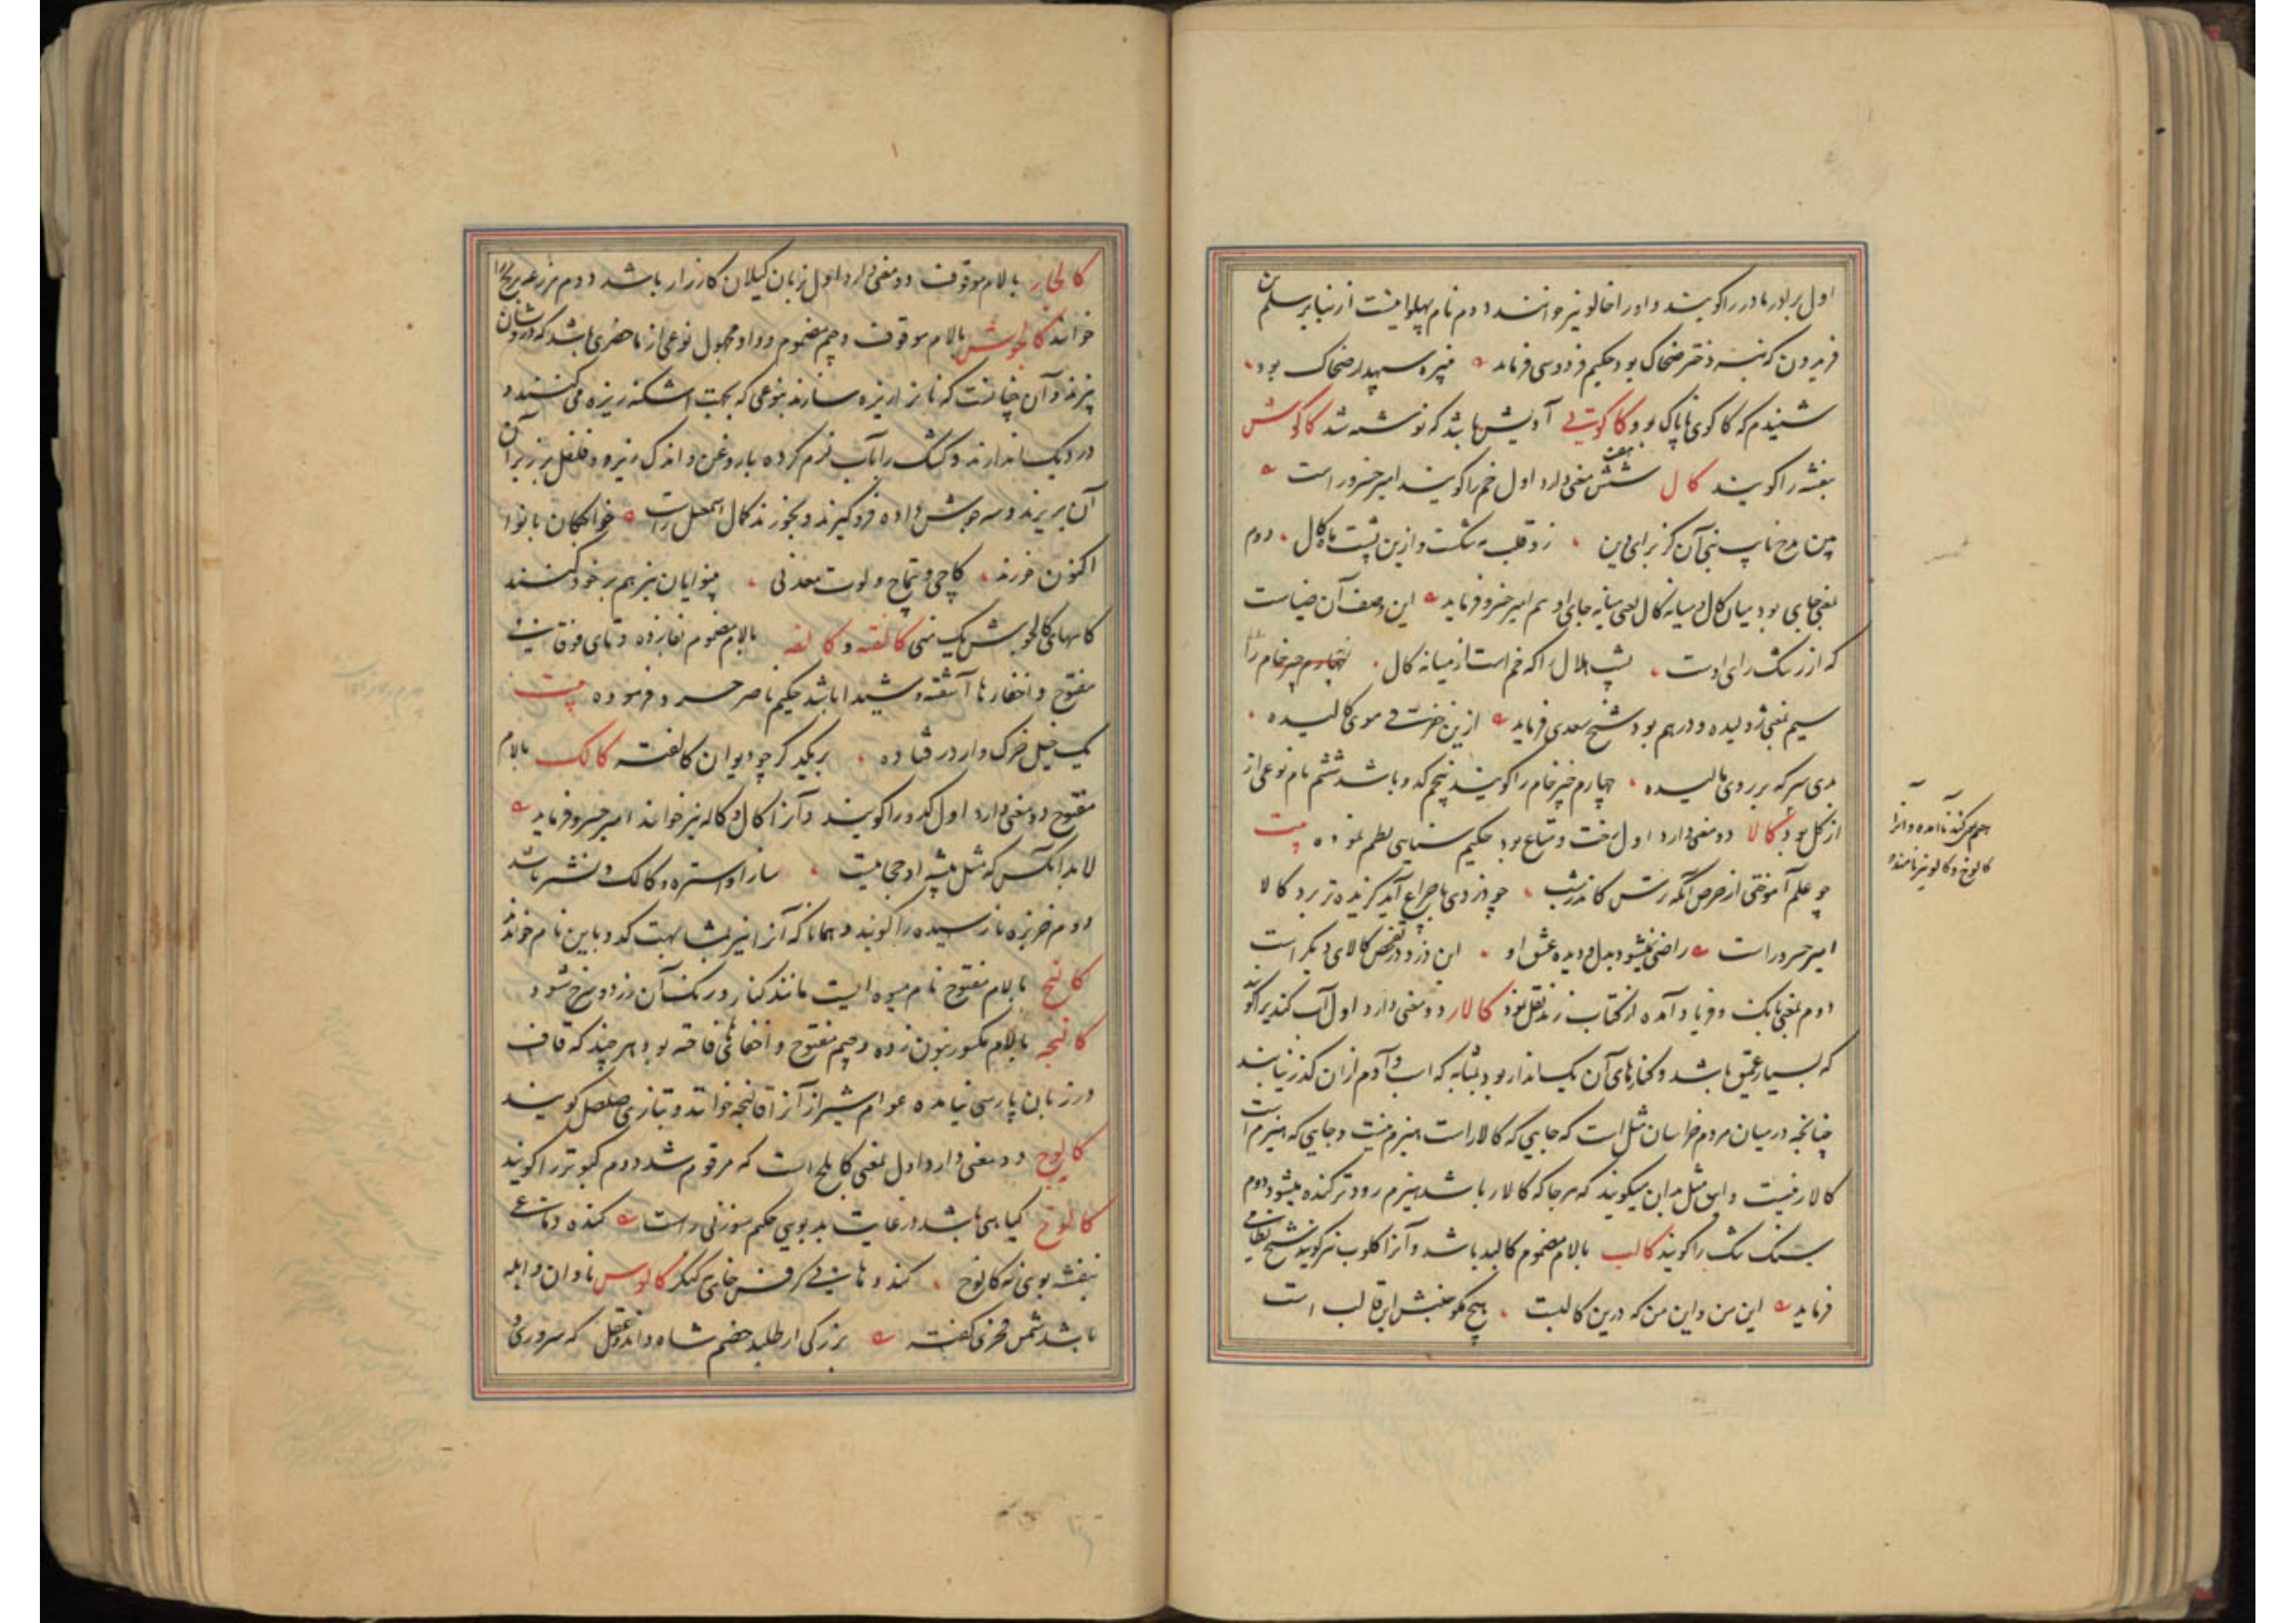 اول برادر مادر را گویند و او را خالو نیز خوانند دوم نام پهلوانیست از نبایر سلم بن
فریدون که نبسه دختر ضحاک بود حکیم فردوسی فرماید نبیره سپهدار ضحاک بود
شنیدم که کاکوی ناپاک بود کاکوتی آویشن باشد که نوشته شد کاکوش
بنفشه را گویند کال شش هفت معنی دارد اول خم را گویند امیر خسرو راست
بین رخ آن کز برای دین زد قلب و ازین پشت ماه کال دوم
بمعنی جای بود میان کال و میانه کال یعنی میانه جای او هم امیر خسرو فرماید این وصف آن ضیاست
که از رشک رای اوست پشت هلال را که خم است از میانه کال چهارم چیز خام را
سیم بمعنی ژولیده و درهم بود شیخ سعدی فرماید ازین خفرقی موی کالیده
بدی سرکه بر روی مالیده چهارم چیز خام را گویند پنجم کدو باشد ششم نام نوعی از
از گل بود کالا دو معنی دارد اول رخت و متاع بود حکیم سنایی نظم نموده بیت
چو علم آموختی از حرص آنگه ترس کاندر شب چو دزدی با چراغ آید گزیده تر برد کالا
امیر خسرو راست راضی نمیشود بدل و دیده عشق او این دزد در تفحص کالای دیگر است
دوم بمعنی بانگ و فریاد آمده از کتاب زند نقل نمود کالار دو معنی دارد اول آب کندیرا گویند
که بسیار عمیق باشد و کنارهای آن یک انداز بود بمثابه که اسب و آدم از آن گذر نیابند
چنانچه در میان مردم خراسان مثل است که جایی که کالار است هیزم نیست و جایی که هیزم است
کالار نیست و این مثل بدان میگویند که هر جا که کالار باشد هیزم زودتر کنده میشود دوم
سنگ را گویند کالب بالام مضموم کالبد باشد و آنرا کلوب نیز گویند شیخ نظامی
فرماید این من و این من که درین کالبت هیچ مگو جنبش این قالب است
کالوخ و کالو نیز نامند
کالجار بالام موقوف دو معنی دارد اول بزبان گیلان کارزار باشد دوم مزرعه برنج را
خوانند کالجوش بالام موقوف و جیم مضموم و واو مجهول نوعی از ماحضری باشد که درویشان
پزند و آن چنانست که نان را ریزه سازند بنوعی که بجهت اشکنه ریزه می کنند و
در دیگ اندازند و کشک را بآب نرم کرده با روغن و اندک زیره و فلفل بر زبر آن
آن بریزند و سه جوش داده فرو گیرند و بخورند کمال اسمعیل راست خواجگان بانوا
اکنون خورند کاچی و تتماج و لوت معدنی بینوایان نیز هم بر خود کنند
کاسهای کالجوش یک منی کالفته و کالفه بالام مضموم بفا زده و تای فوقانی
مفتوح و اخفاء ها آشفته و شیدا باشد حکیم ناصر خسرو فرموده بیت
یک خیل خوک وار درفتاده بر یکدگر چو دیوان کالفته کالک بالام
مفتوح دو معنی دارد اول کدو را گویند و آنرا کال و کاله نیز خوانند امیر خسرو فرماید
لابد آنکس که مثل پیشه او حجامیت ساز او استره و کالک و نشتر باشد
دوم خربزه نارسیده را گویند و همانا که آنرا نیز بمشابهت کدو باین نام خوانند
کالنج بالام مفتوح نام میوه ایست مانند کنار و رنگ آن زرد و سرخ شود
کالنجه بالام مکسور بنون زده و جیم مفتوح و اخفای ها فاخته بود هر چند که قاف
در زبان پارسی نیامده عوام شیراز آنرا قالنجه خوانند و بتازی صلصل گویند
کالوج دو معنی دارد اول بمعنی کابلج است که مرقوم شد دوم کبوتر را گویند
کالوخ گیاهی باشد در غایت بدبویی حکیم سوزنی راست کنده دماغی
بنفشه بوی نه کالوخ کنده دهانی کرفس خای نه کنگر کالوس نادان و ابله
باشد شمس فخری گفت بزرگی ار طلبد خصم شاه داند عقل که سروری